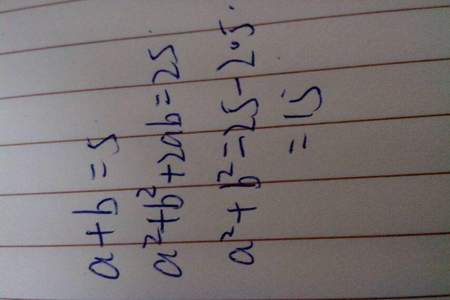 a+b=5
a²+b²+2ab=25
a²+b²=25-2·5.
=15